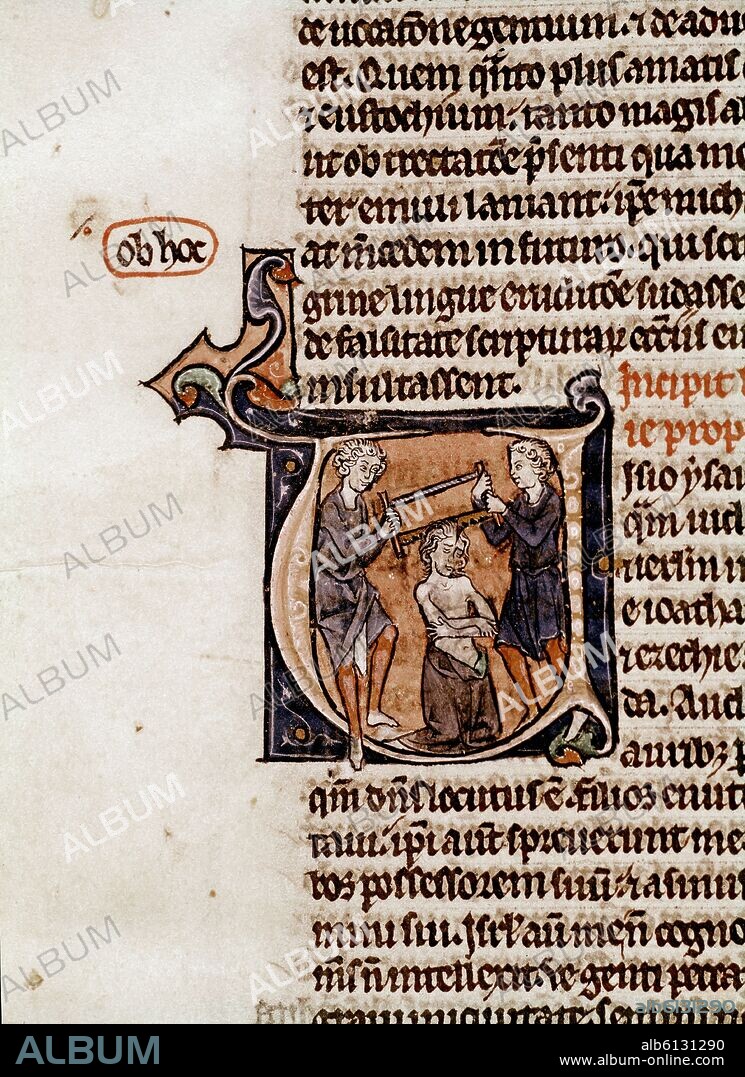 de uocatōne gentium. ⁊ de adu
est. Quem q̄nto plus amatis
⁊ eustochium. tanto magis a
ut ob trectatōe p̄senti qua me
ter emuli laniant. ip̄e mich
ob hoc
at m̄cedem in futurū. qui sc
gine lingue erudicōe sudasse
de falsitate scripturaꝝ ecc̄iis
insultassent.
Incipit
ie prop
isio ysai
qm̄ uid
ierl̄m
e ioatha
⁊ ezechie
da. Aud
auribȝ p
qm̄ dn̄s locutus ē. filios enut
taui. ip̄i aut̄ spreuerunt me
bos possessorem suū. ⁊ asinus
mini sui. Isrl̄ aū me n̄ cogno
m̄s n̄ intellexit. Ve genti pecca
graui iniquitate. sem
ALBUM
alb6131290
ALBUM
alb6131290
www.album-online.com